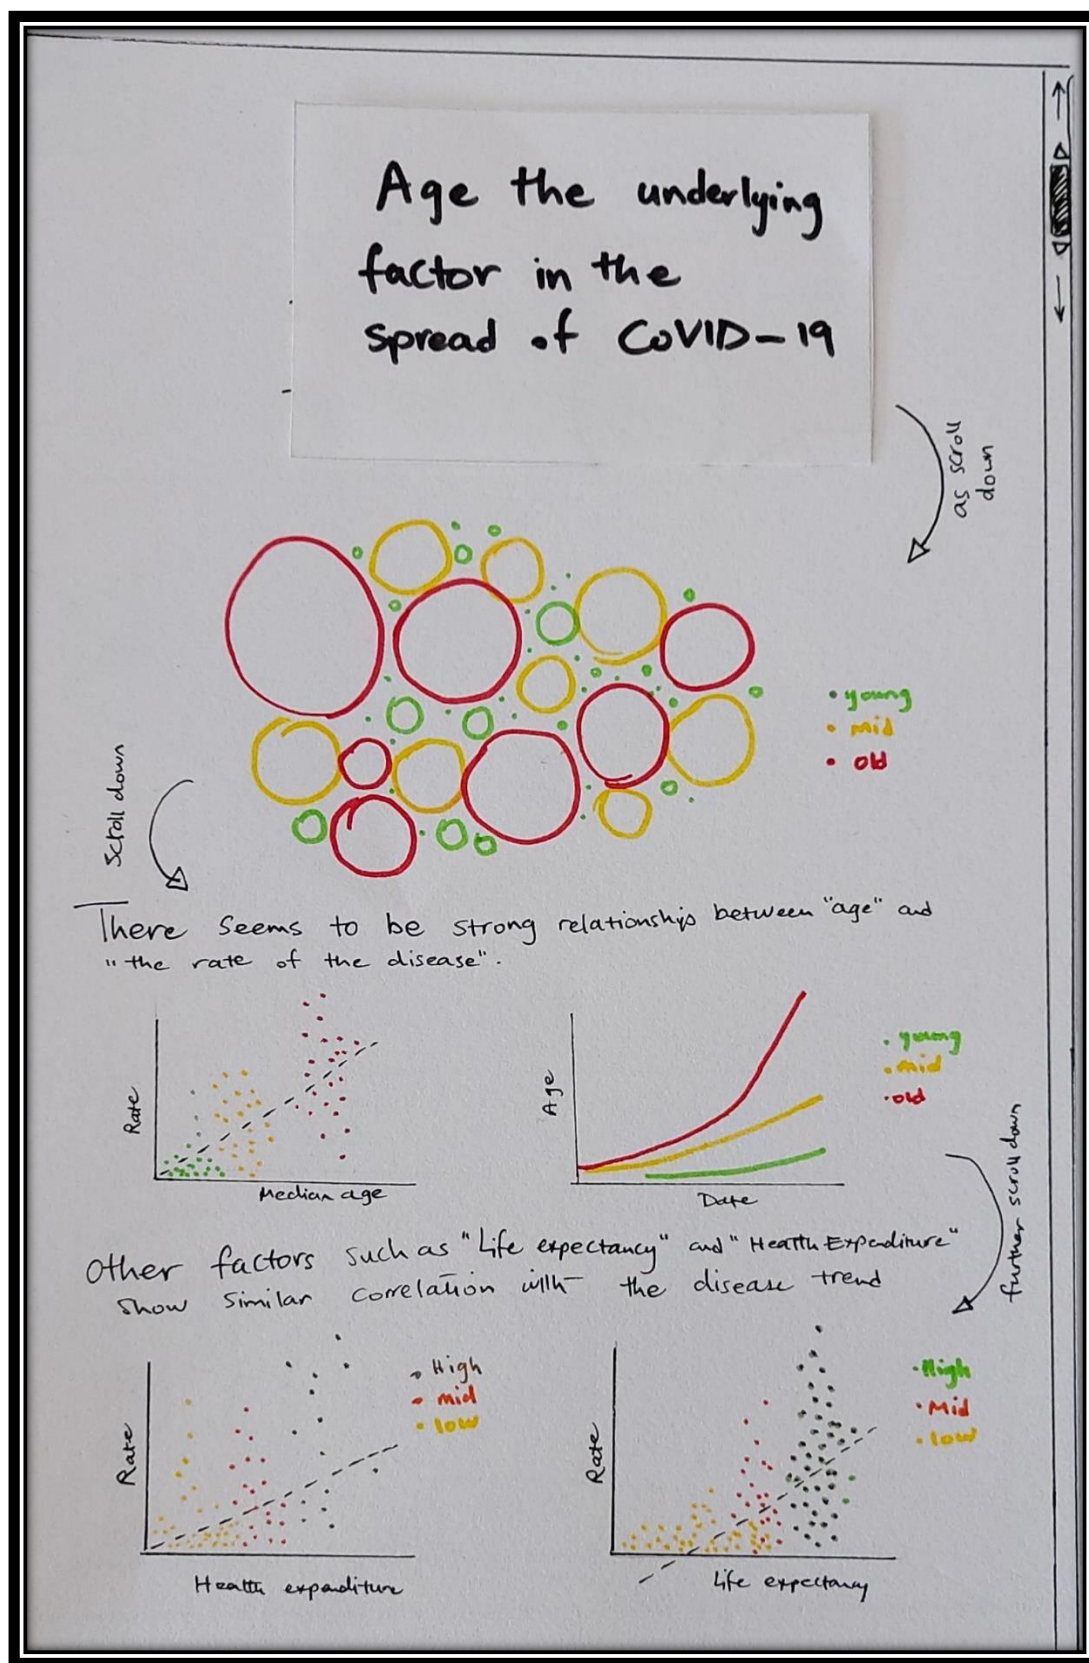 Age the underlying
factor in the
spread of CoVID-19
as scroll
down
young
mid
old
Scroll down
There seems to be strong relationship between "age" and
"the rate of the disease".
Rate
Median age
Age
Date
young
mid
old
further scroll down
Other factors such as "Life expectancy" and "Health Expenditure"
show similar correlation with the disease trend
Rate
Health expenditure
High
mid
low
Rate
Life expectancy
High
Mid
low